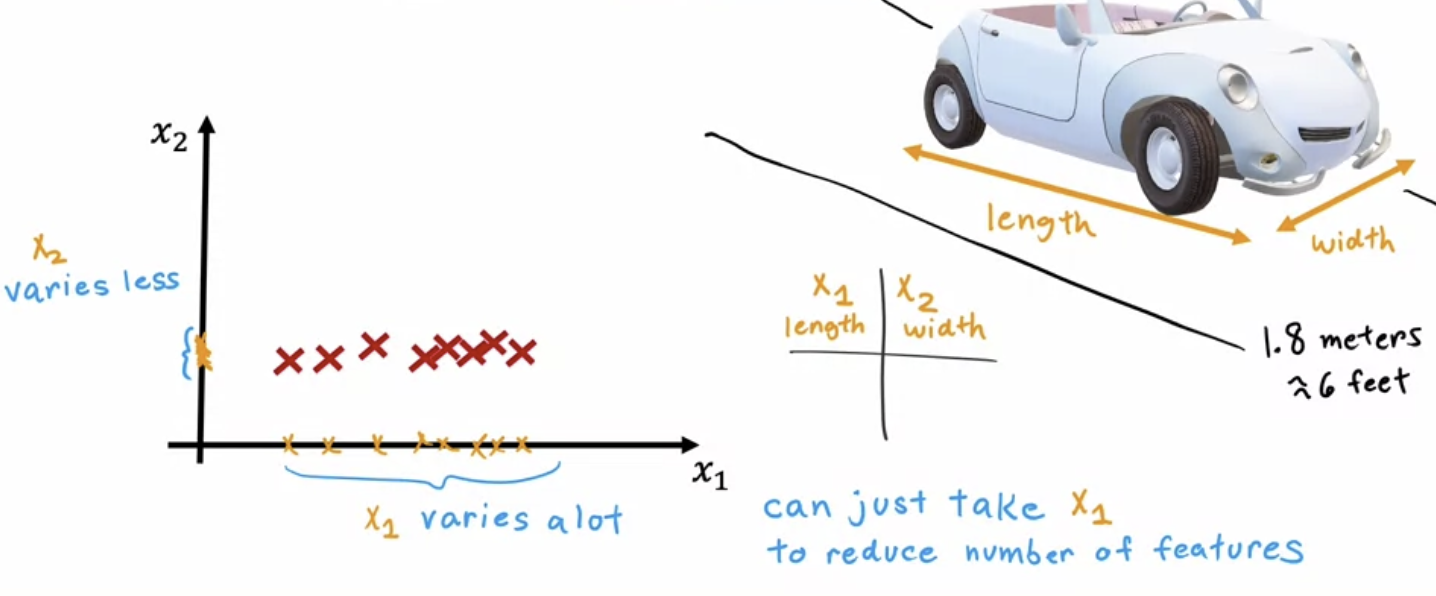 x₂
x₂
varies less
x₁
x₁ varies alot
length
width
x₁ x₂
length width
1.8 meters
≈6 feet
can just take x₁
to reduce number of features